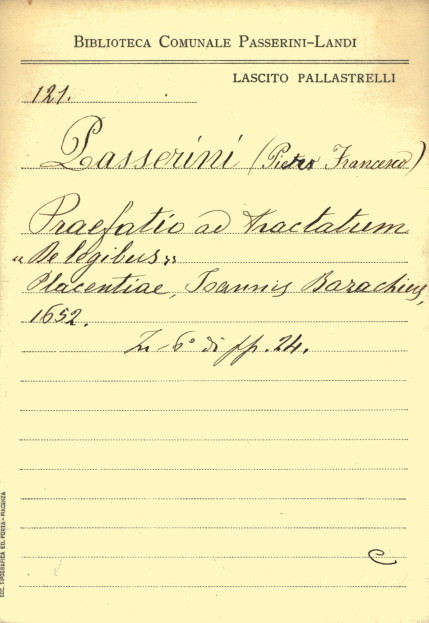 BIBLIOTECA COMUNALE PASSERINI-LANDI
LASCITO PALLASTRELLI
121.
Passerini (Pietro Francesco)
Praefatio ad tractatum
"De legibus"
Placentiae, Ioannis Barachius,
1652.
In-6° di pp. 24.
C
SOC. TIPOGRAFICA ED. PORTA - PIACENZA